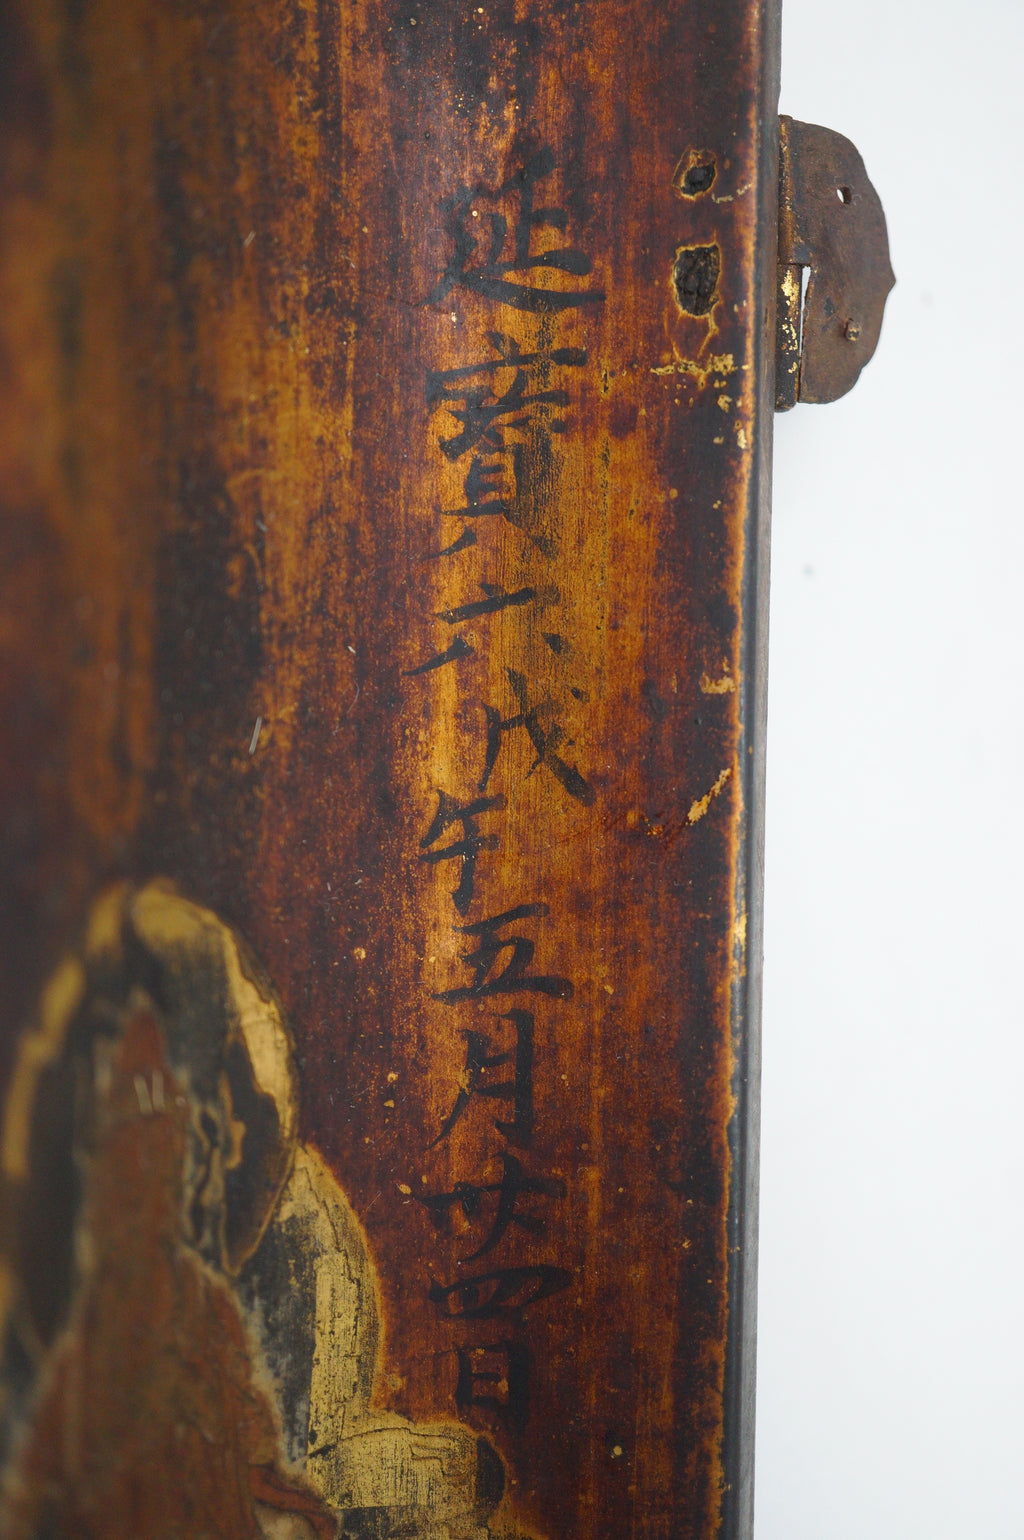 延寳六戊午五月廿四日